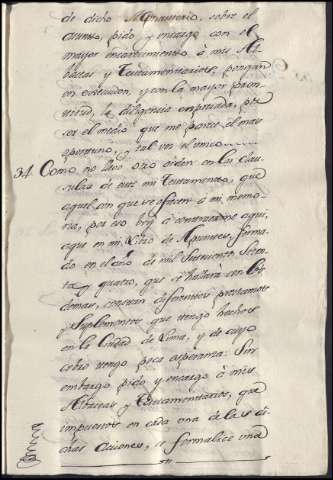 de dicho Monasterio, sobre el
asunto, pido y encargo con el
mayor encarecimiento â mis Al-
baceas y Testamentarios, pongan
en execucion, y con la mayor pron-
titud, la diligencia expresada, por
ser el medio que me parece el mas
oportuno, y tal vez el unico
34. Como no llevo otro orden en las Clau-
sulas de este mi Testamento, que
aquel con que se ofrecen â mi memo-
ria, por eso hoy â contratarme aqui,
que en mi Libro de Apuntes, forma-
do en el año de mil Setecientos Seten-
ta y quatro, que se hallara con los
demas, constan diferentes prestamos
y Suplementos que tengo hechos
en la Ciudad de Lima, y de cuyo
cobro tengo poca esperanza: Sin
embargo pido y encargo â mis
Albaceas y Testamentarios, que
impuestos en cada una de las di-
chas Acciones, se formalice una